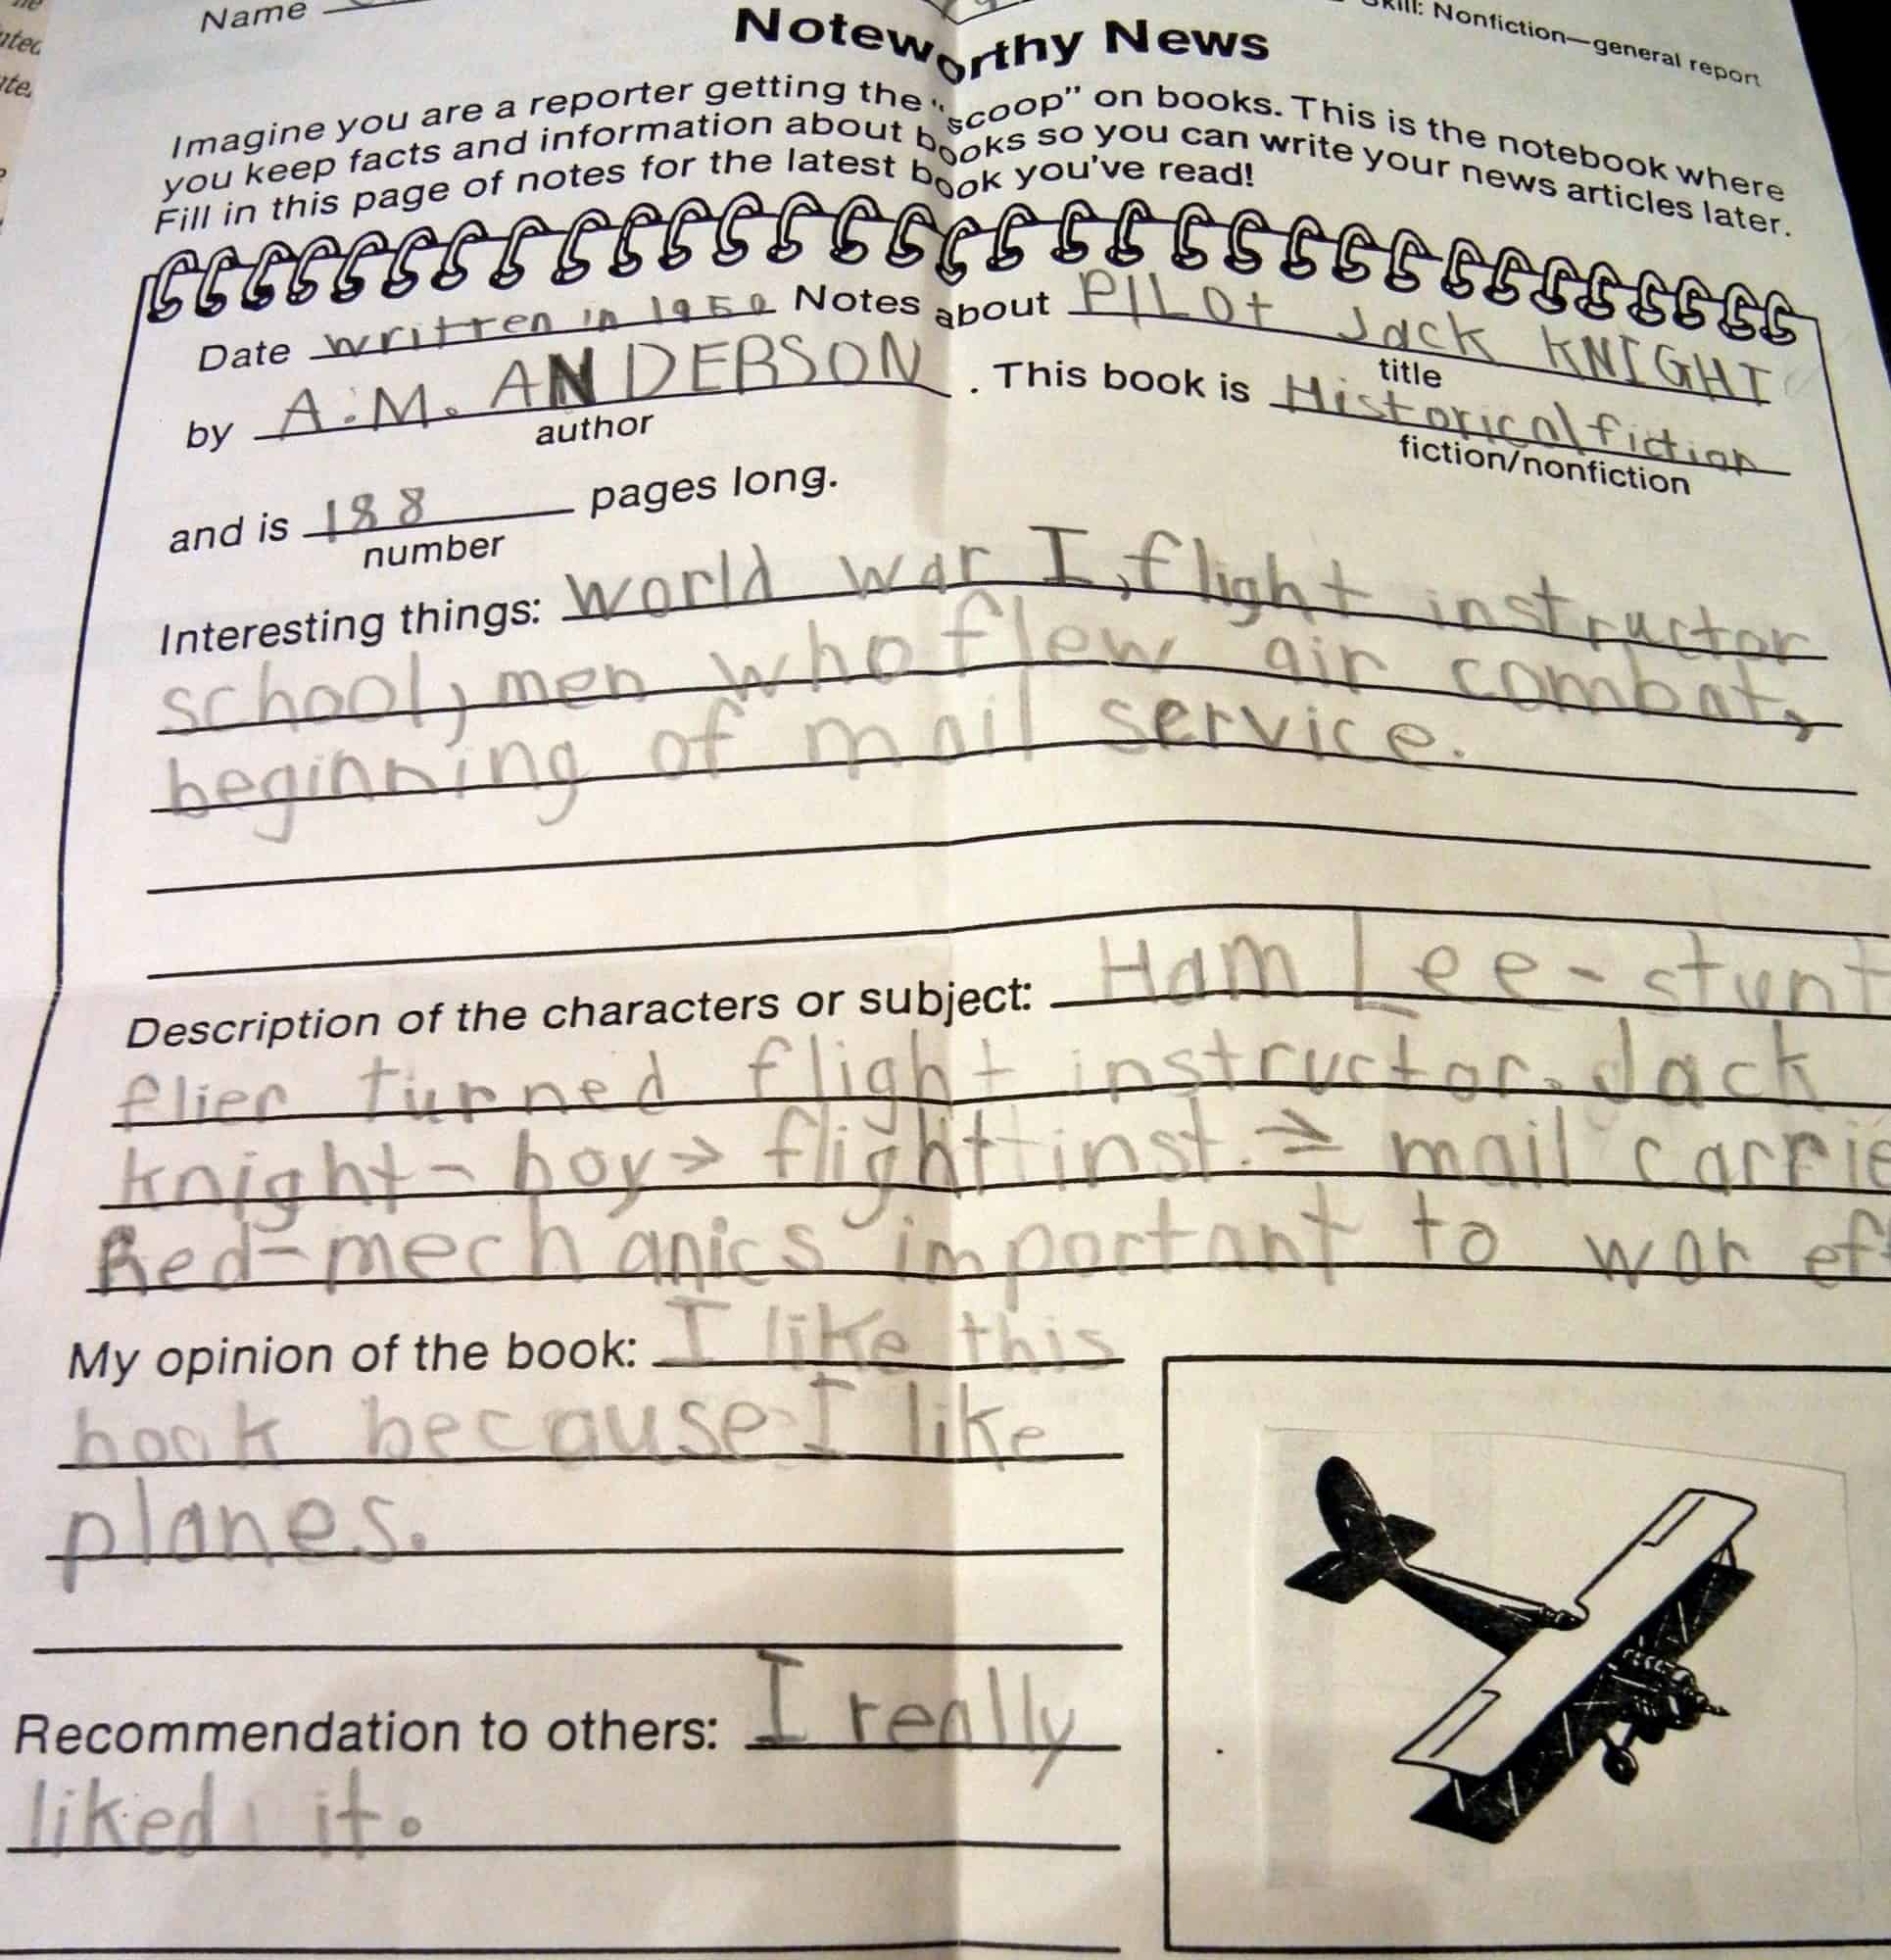 Name
Skill: Nonfiction—general report
Noteworthy News
Imagine you are a reporter getting the "scoop" on books. This is the notebook where
you keep facts and information about books so you can write your news articles later.
Fill in this page of notes for the latest book you've read!
Date written in 1950 Notes about PILOt Jack KNIGHT
title
by A.M. ANDERSON . This book is Historical fiction
author
fiction/nonfiction
and is 188 pages long.
number
Interesting things: world war I, flight instructor
school, men who flew air combat,
beginning of mail service.
Description of the characters or subject: Ham Lee - stunt
flier turned flight instructor. Jack
knight - boy → flight inst. → mail carrie
Red - mechanics important to war ef
My opinion of the book: I like this
book because I like
planes.
Recommendation to others: I really
liked it.